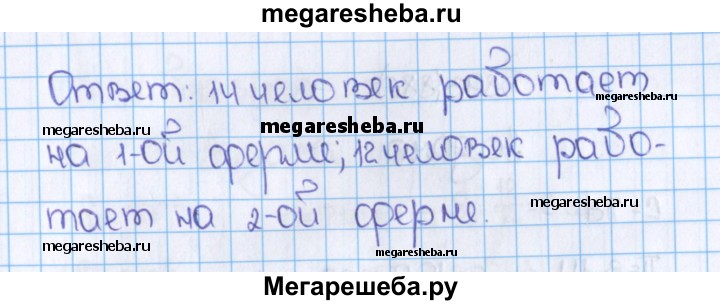 megaresheba.ru
Ответ: 14 человек работает
megaresheba.ru megaresheba.ru
на 1-ой ферме; 12 человек рабо-
megaresheba.ru
тает на 2-ой ферме.
megaresheba.ru megaresheba.ru
Мегарешеба.ру